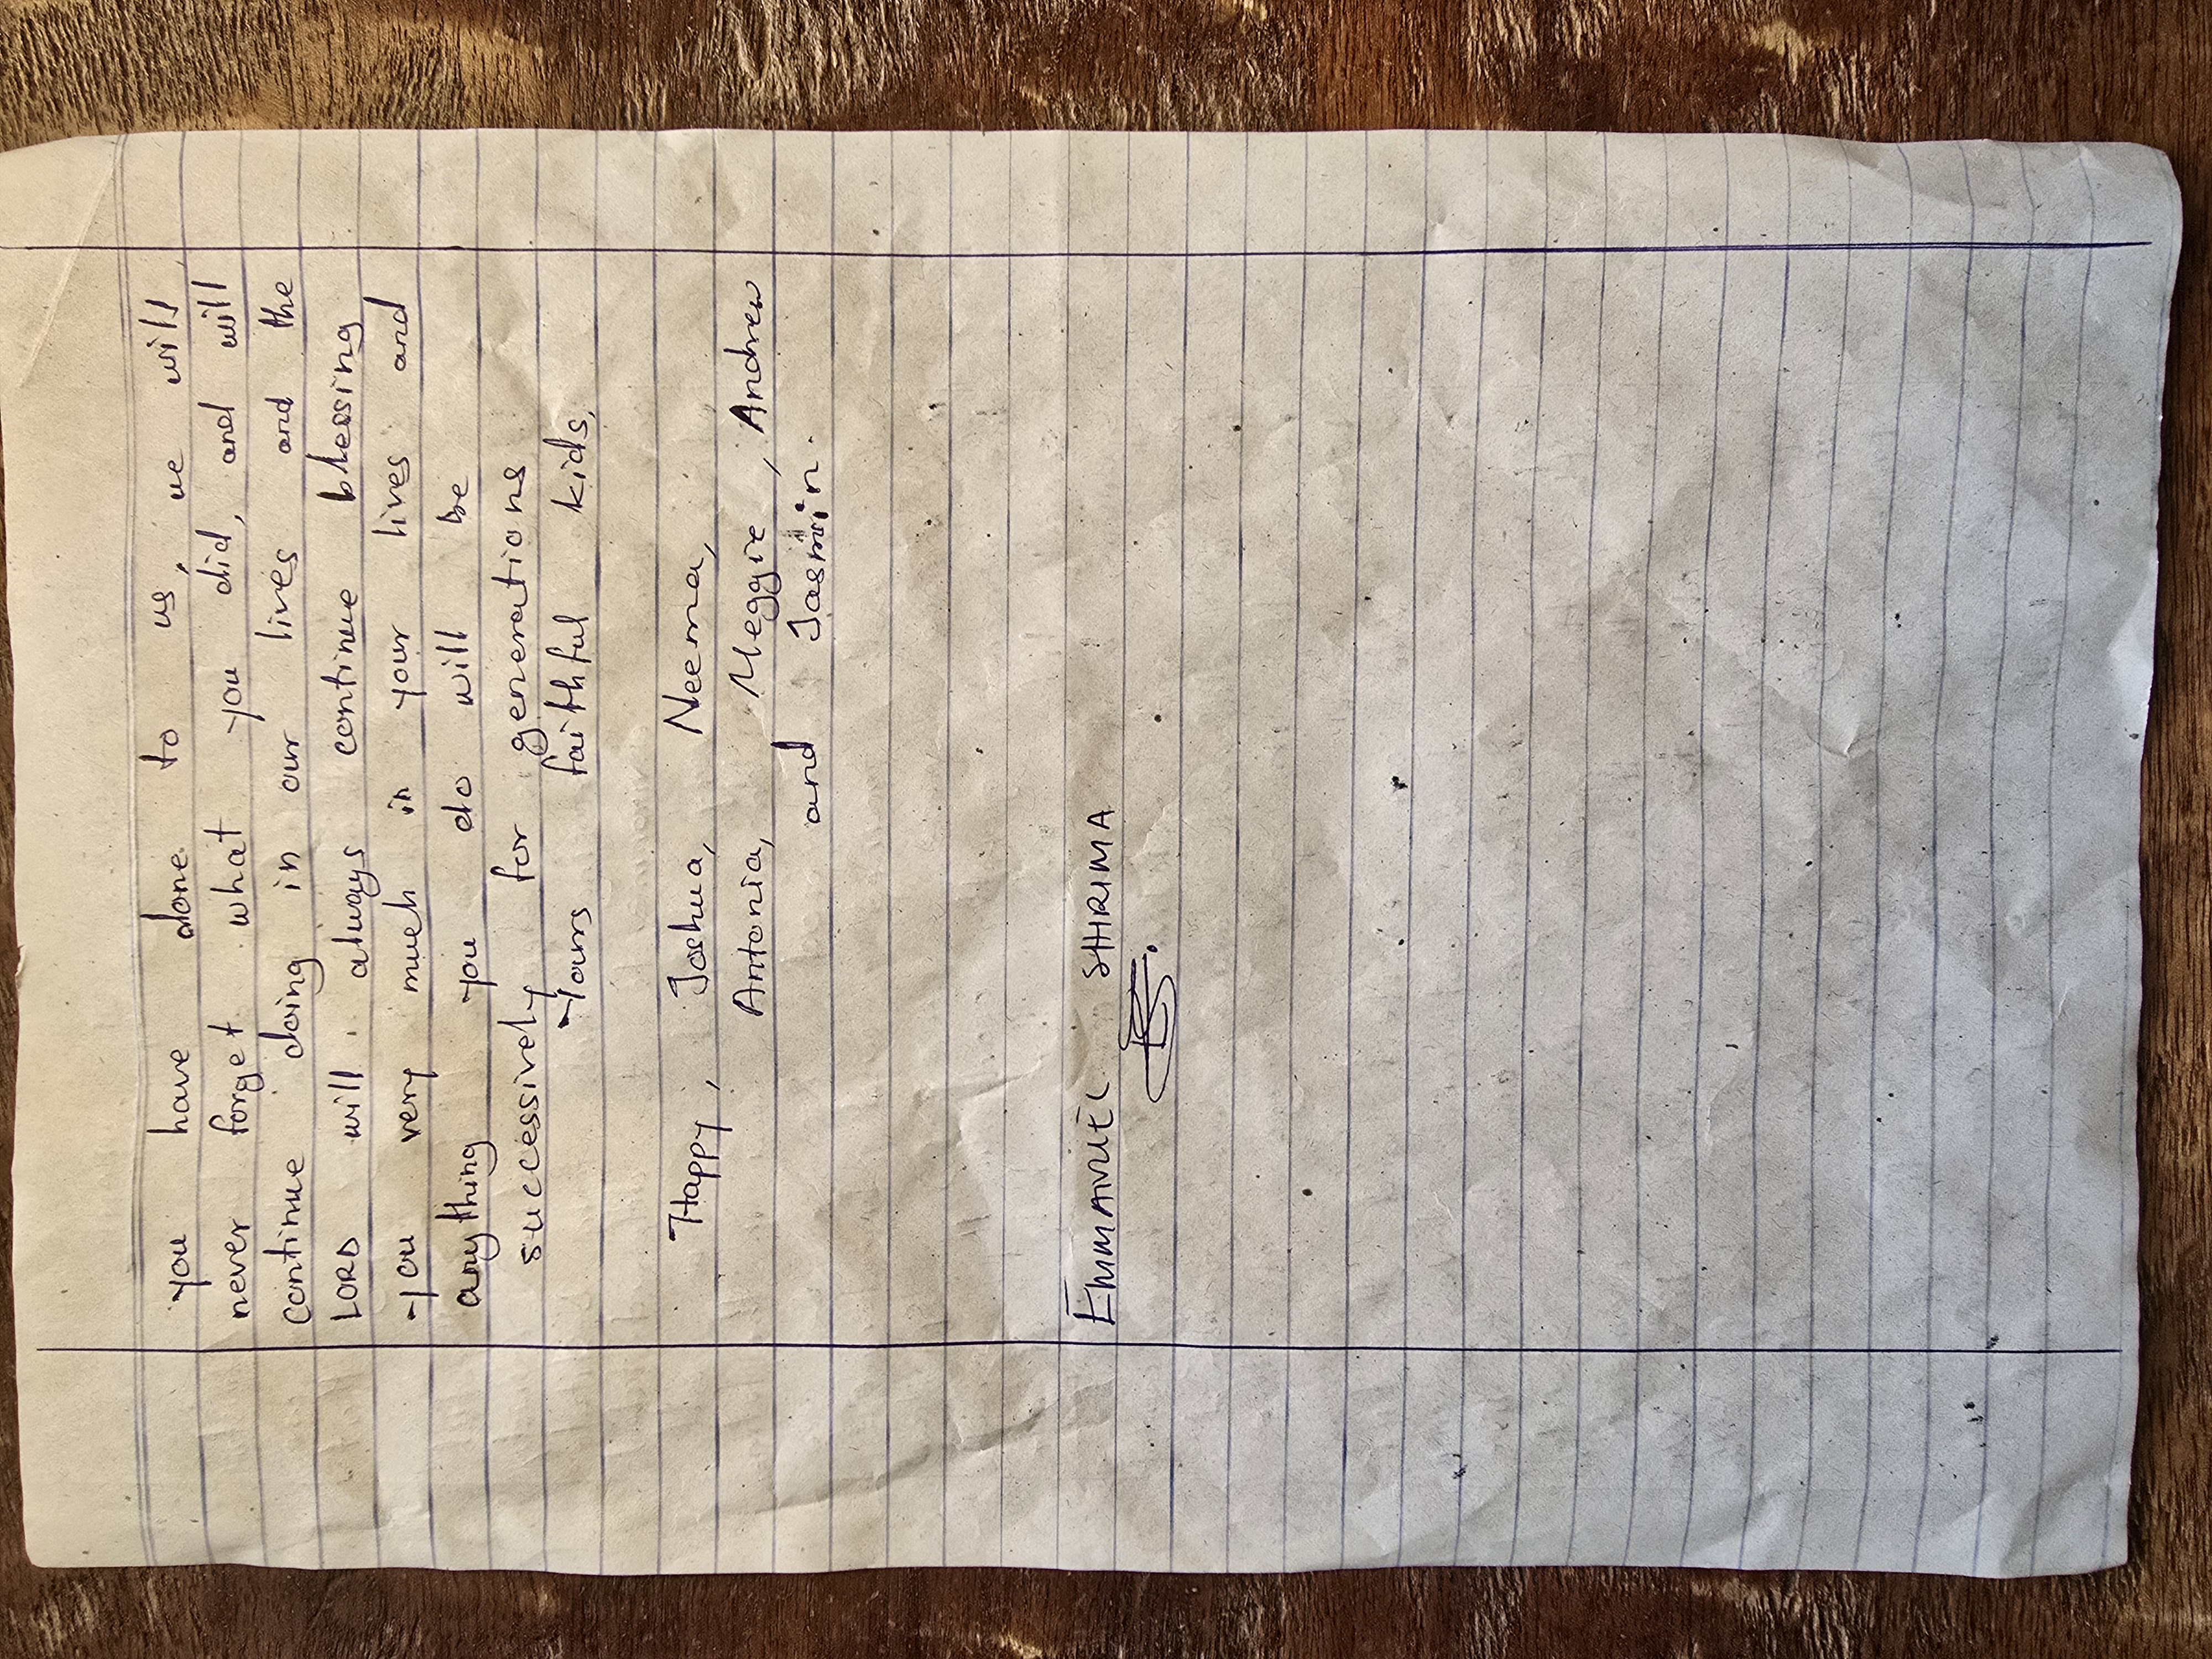 you have done to us, we will
never forget what you did, and will
continue doing in our lives and the
LORD will always continue blessing
You very much in your lives and
anything you do will be
successively for generations
Yours faithful kids,
Happy, Joshua, Neema,
Antonia, Meggie, Andrew
and Jasmin.
EMMANUEL SHRIMA